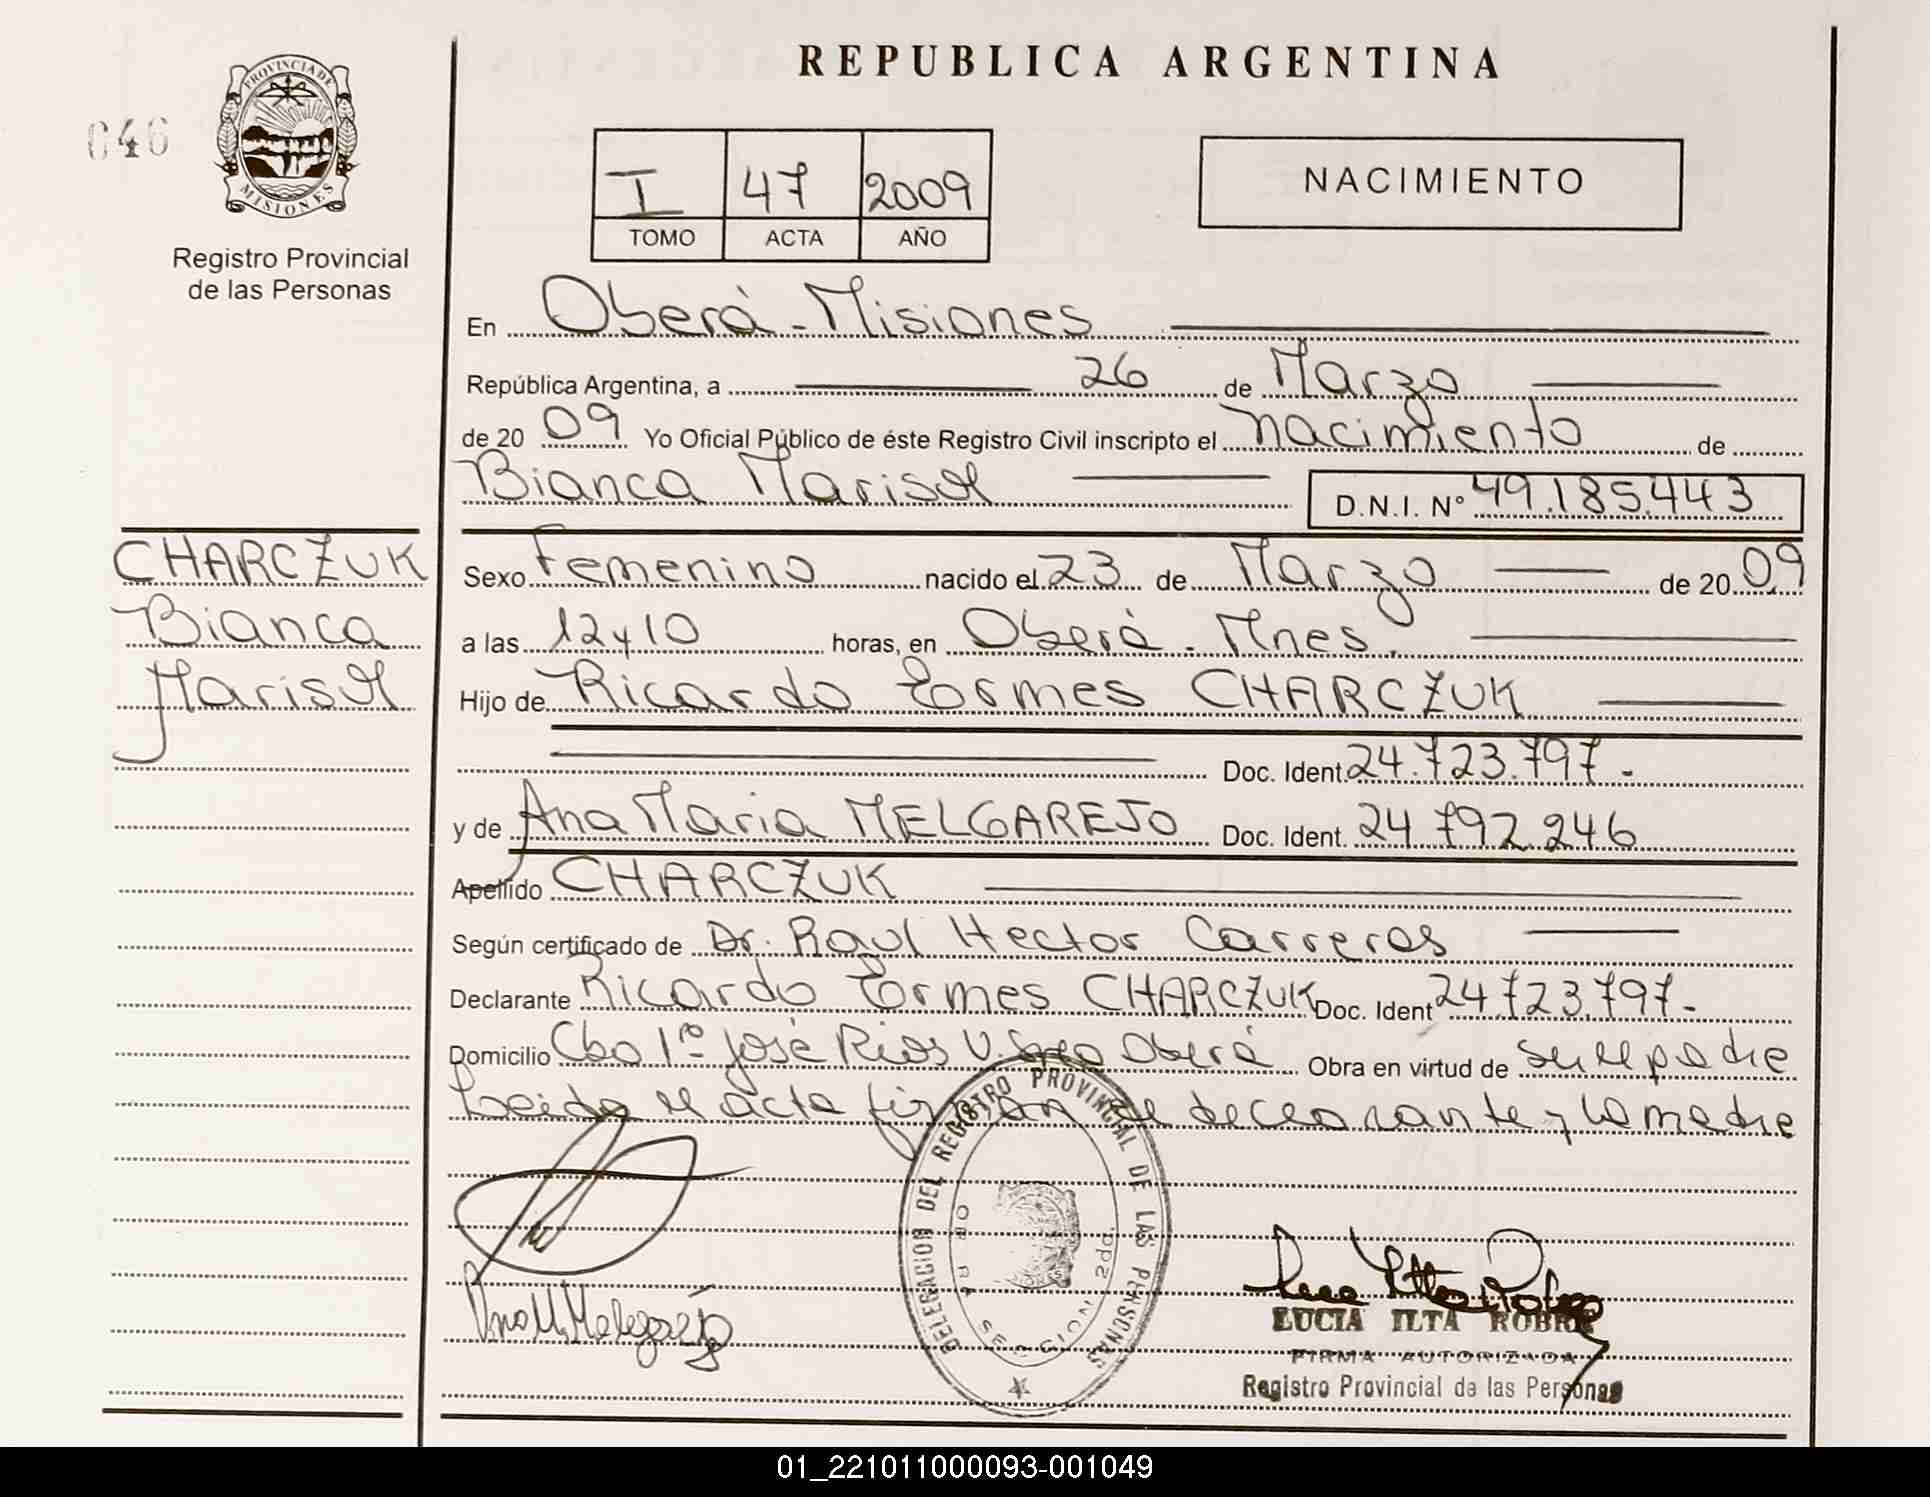 REPUBLICA ARGENTINA
046
PROVINCIA DE
MISIONES
Registro Provincial
de las Personas
I 47 2009
TOMO ACTA AÑO
NACIMIENTO
En Oberá - Misiones
República Argentina, a 26 de Marzo
de 20 09 Yo Oficial Público de éste Registro Civil inscripto el nacimiento de
Bianca Marisol D.N.I. N° 49.185.443
CHARCZUK
Bianca
Marisol
Sexo Femenino nacido el 23 de Marzo de 20 09
a las 12 y 10 horas, en Oberá - Mnes.
Hijo de Ricardo Tormes CHARCZUK
Doc. Ident. 24.723.797.-
y de Ana Maria MELGAREJO Doc. Ident. 24.792.246
Apellido CHARCZUK
Según certificado de Dr. Raul Hector Carreras
Declarante Ricardo Tormes CHARCZUK Doc. Ident 24.723.797.-
Domicilio Cbo 1º José Rios V. Oberá Obra en virtud de ser el padre
Leida el acta firman el declarante y la madre
DELEGACION DEL REGISTRO PROVINCIAL DE LAS PERSONAS
OBERA SECCION 2DA.
Ana M. Melgarejo
LUCIA ILTA
FIRMA AUTORIZADA
Registro Provincial de las Personas
01_221011000093-001049